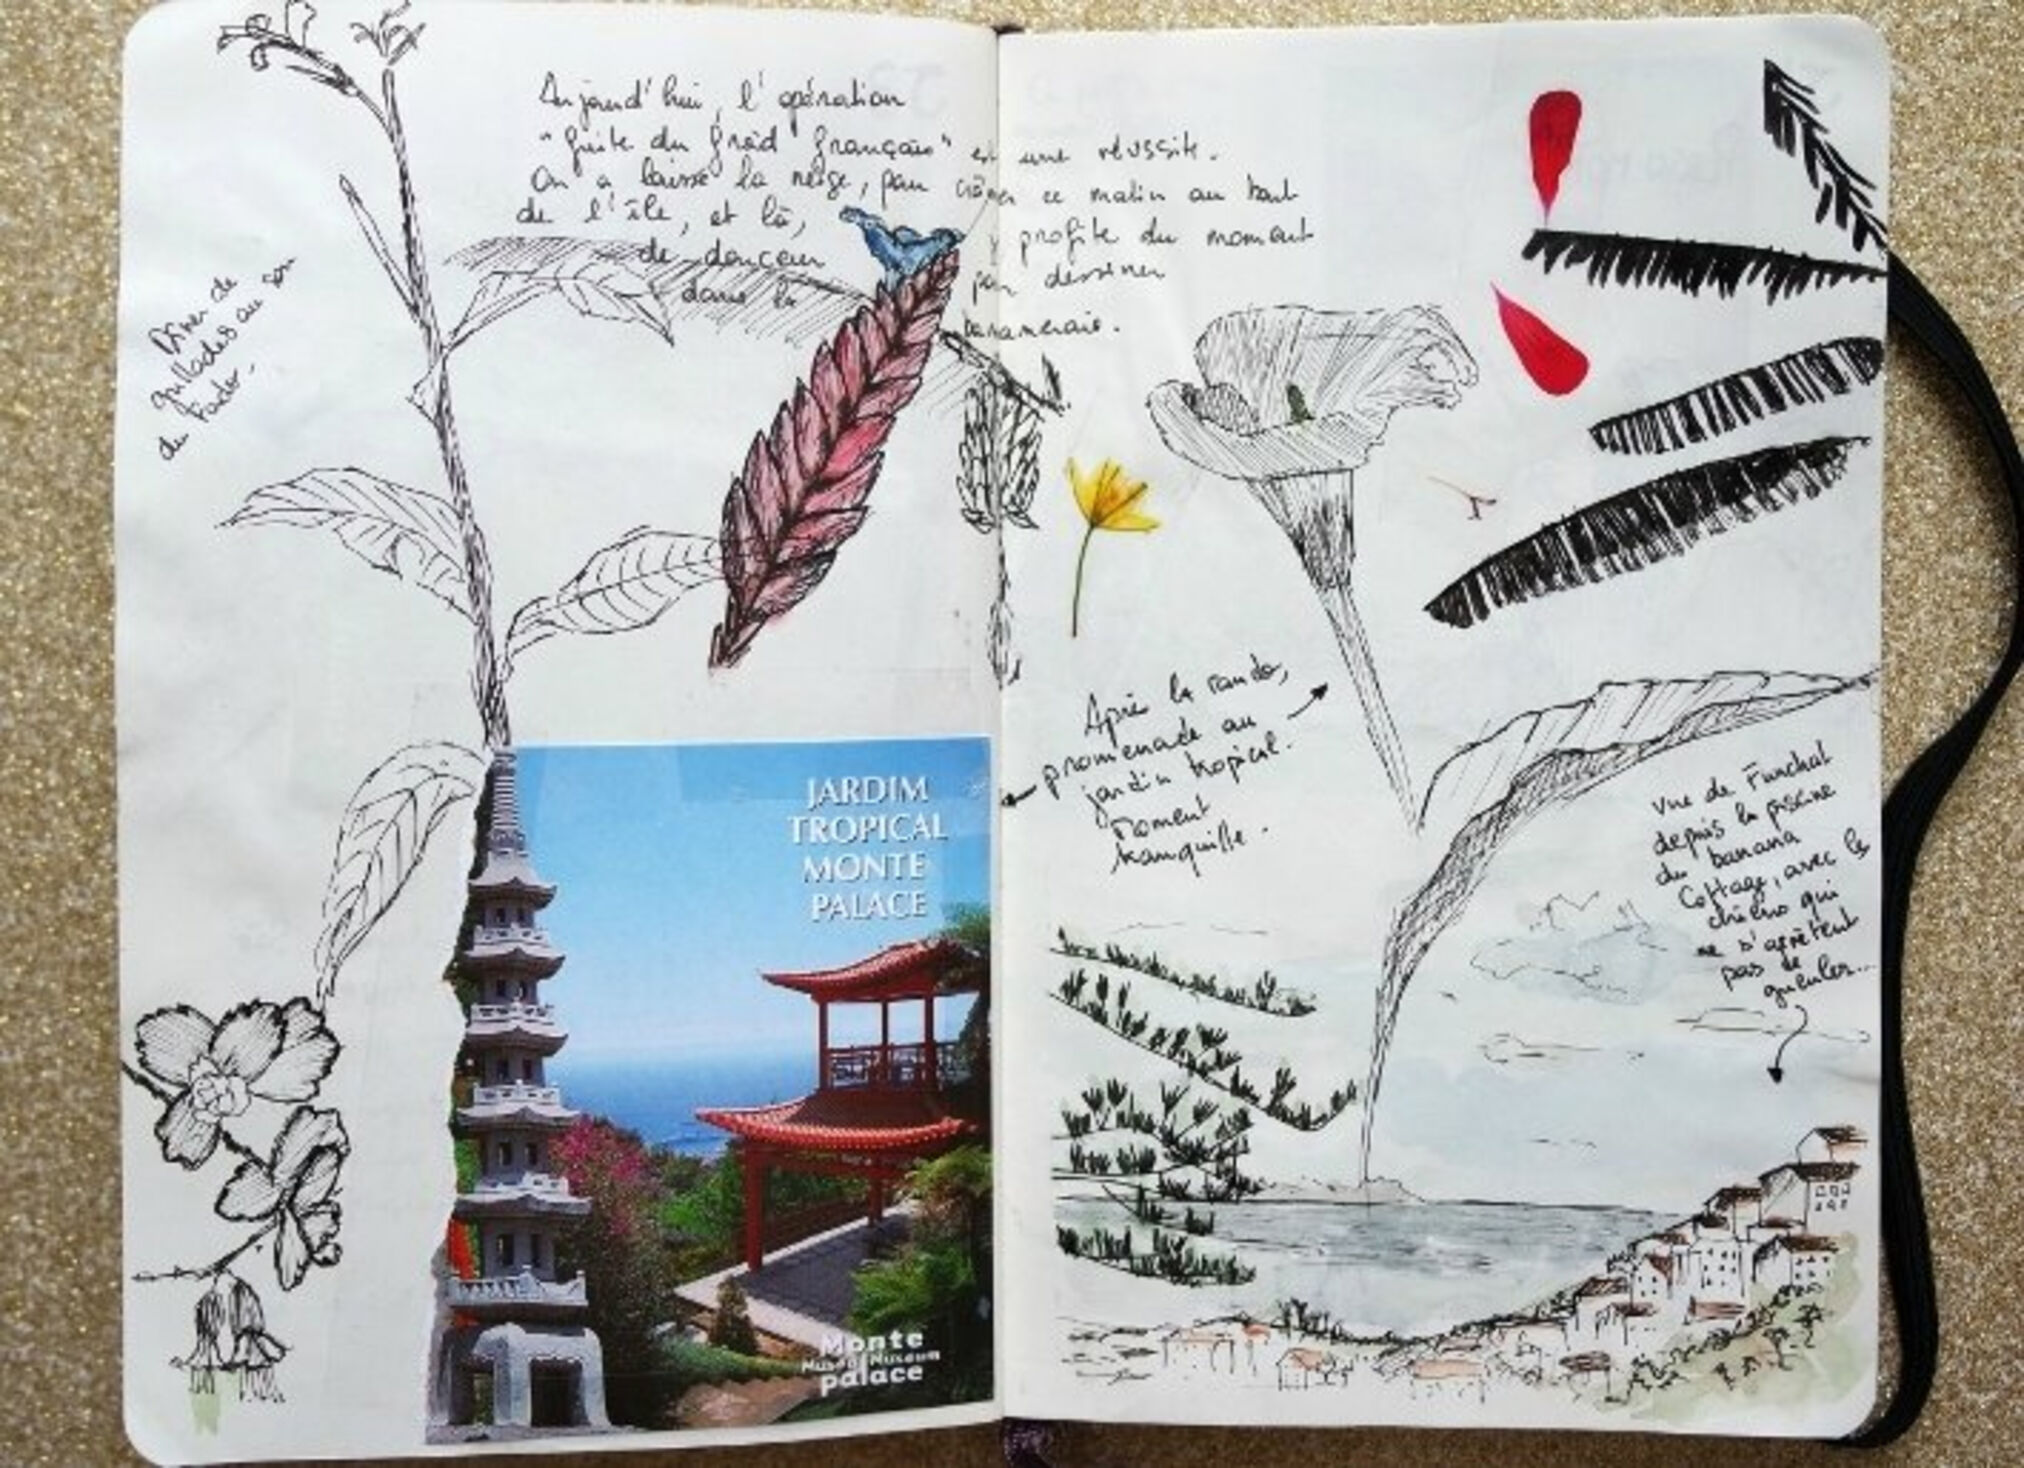 Aujourd'hui, l'opération
"fuite du froid français" est une réussite.
On a laissé la neige, pour crâner ce matin au haut
de l'île, et là, y profite du moment
de douceur pour dessiner
dans la bananeraie.
Dîner de
grillades au son
du Fado.
JARDIM
TROPICAL
MONTE
PALACE
Monte
Museu Museum
palace
Après la rando,
promenade au
jardin tropical.
Moment
tranquille.
Vue de Funchal
depuis la piscine
du banana
Cottage, avec les
chiens qui
ne s'arrêtent
pas de
gueuler...